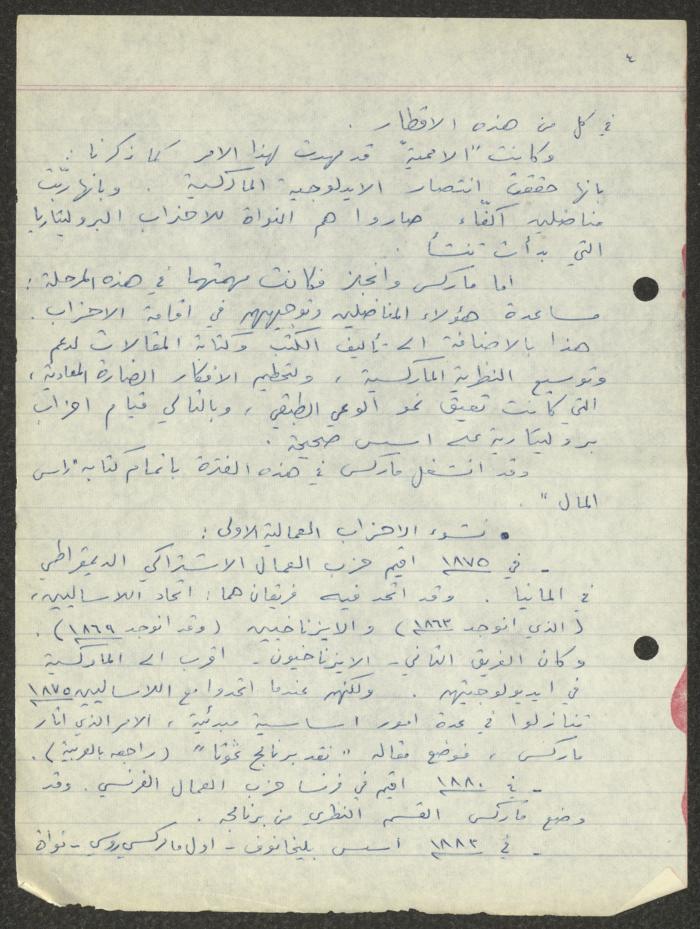 ٤
في كل من هذه الاقطار .
وكانت "الاممية" قد مهدت لهذا الامر كما ذكرنا :
بانها حققت انتصار الايدلوجية الماركسية . وبانها ربّت
مناضلين اكفّاء صاروا هم النواة للاحزاب البروليتاريا
التي بدأت تنشأ .
اما ماركس وانجلز فكانت مهمتهما في هذه المرحلة :
مساعدة هؤلاء المناضلين وتوجيههم في اقامة الاحزاب .
هذا بالاضافة الى تأليف الكتب وكتابة المقالات لدعم
وتوسيع النظرية الماركسية ، ولتحطيم الافكار الضارة المعادية ،
التي كانت تعيق نمو الوعي الطبقي ، وبالتالي قيام احزاب
بروليتارية على اسس صحيحة .
وقد انشغل ماركس في هذه الفترة باتمام كتابه "راس
المال" .
• نشوء الاحزاب العمالية الاولى :
- في ١٨٧٥ اقيم حزب العمال الاشتراكي الديمقراطي
في المانيا . وقد اتحد فيه فريقان هما : اتحاد اللاساليين ،
(الذي انوجد ١٨٦٣) والايزناخيين (وقد انوجد ١٨٦٩) .
وكان الفريق الثاني - الايزناخيون - اقرب الى الماركسية
في ايديولوجيتهم . ولكنهم عندما اتحدوا مع اللاساليين ١٨٧٥
تنازلوا في عدة امور اساسية مبدئية ، الامر الذي اثار
ماركس ، فوضع مقاله "نقد برنامج غوتا" (راجعه بالعربية) .
- في ١٨٨٠ اقيم في فرنسا حزب العمال الفرنسي . وقد
وضع ماركس القسم النظري من برنامجه .
- في ١٨٨٣ اسس بليخانوف - اول ماركسي روسي - نواة